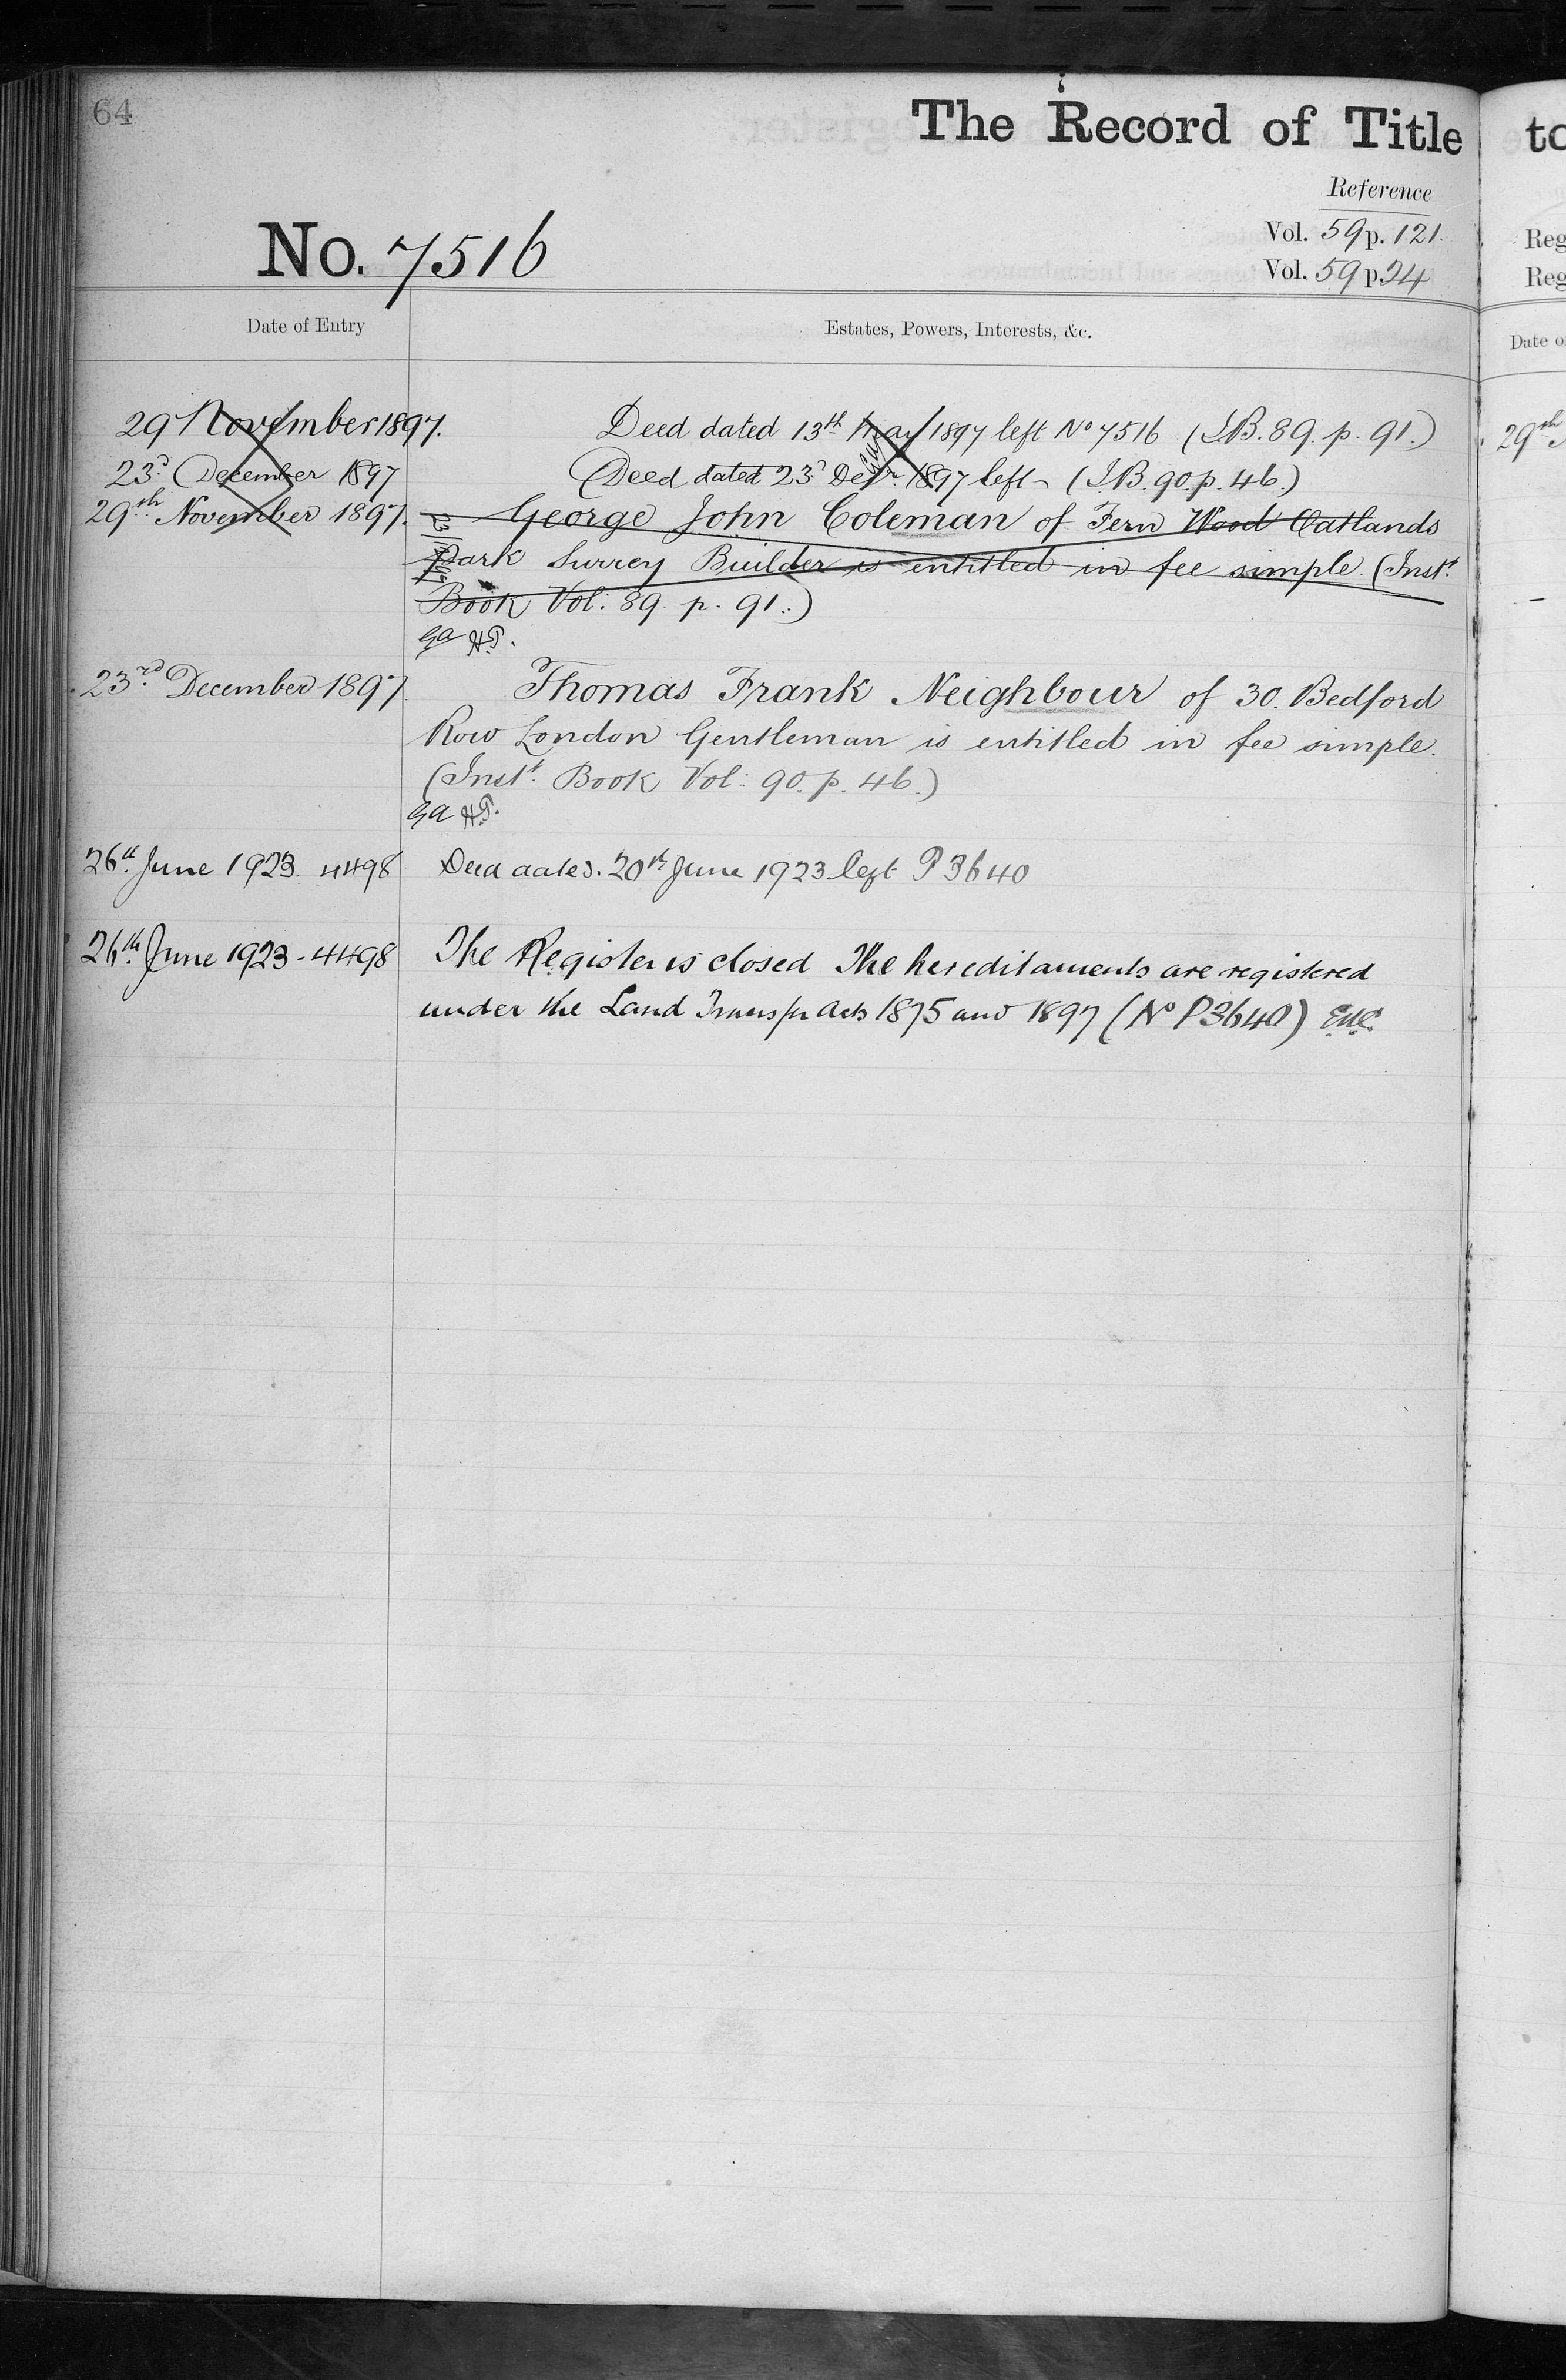 64
The Record of Title
to
Reference
Vol. 59 p. 121.
Vol. 59 p. 24
Reg
Reg
No. 7516
Date of Entry
Estates, Powers, Interests, &c.
Date o
29 November 1897. Deed dated 13th May 1897 left No 7516 (I.B. 89. p. 91.)
29th
23d December 1897 Deed dated 23d Decr. 1897 left - (I.B. 90. p. 46.)
29th November 1897. George John Coleman of Fern Wood Oatlands
Park Surrey Builder is entitled in fee simple. (Instt.
Book Vol: 89. p. 91.)
GA HT.
23rd December 1897. Thomas Frank Neighbour of 30. Bedford
Row London Gentleman is entitled in fee simple.
(Instt. Book Vol: 90. p. 46.)
GA HT.
26th June 1923. 4498 Deed dated. 20th June 1923 left P 3640
26th June 1923 - 4498 The Register is closed The hereditaments are registered
under the Land Transfer Acts 1875 and 1897 (No P3640)